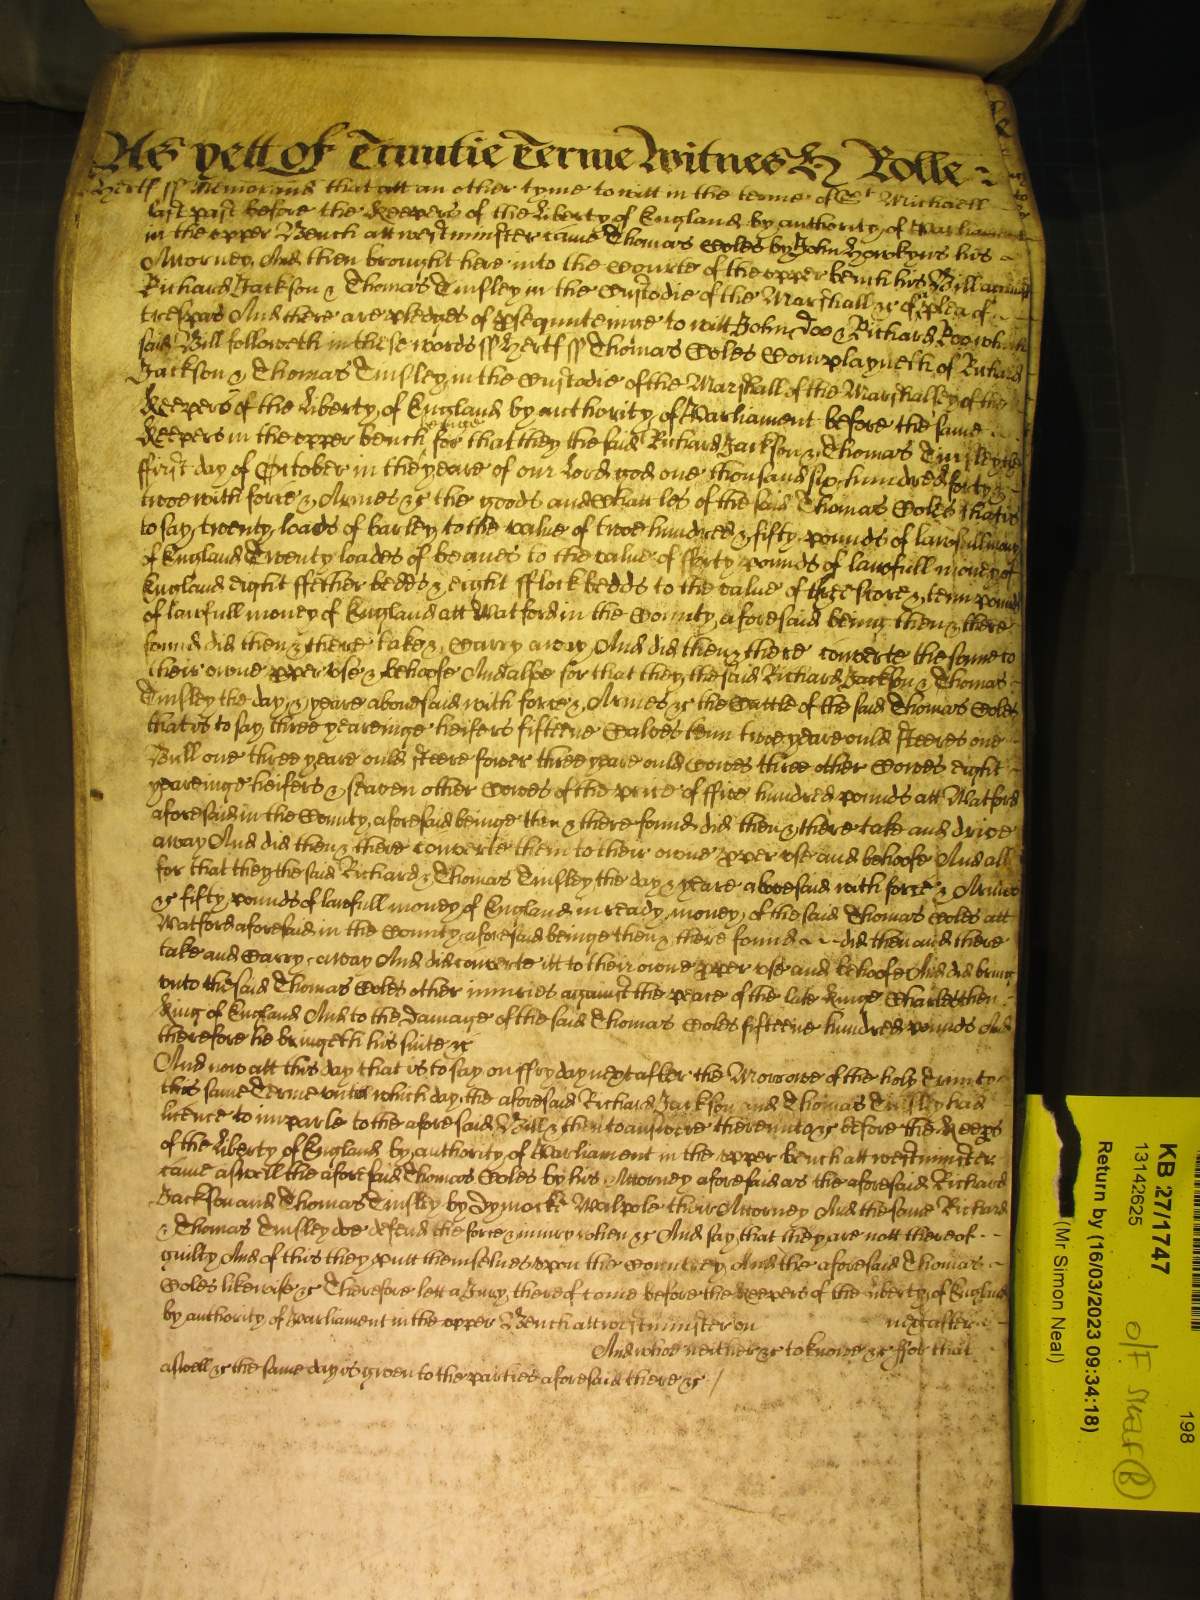 As yett of Trinitie Terme Witnes H Rolle :
Hertf ss Memorand that att an other tyme to witt in the terme of St Michaell
last past before the Keepers of the Liberty of England by authority of Parliament
in the upper Bench att westminster came Thomas Coles by John Howkyns his
Attorney, And then brought here into the Courte of the upper bench his Bill against
Richard Jackson & Thomas Tinsley in the Custodie of the Marshall &c of a plea of
trespas And there are pledges of psequution to witt John Doo & Richard Roo which
said Bill followeth in these words ss Hertf ss Thomas Coles Complayneth of Richard
Jackson & Thomas Tinsley in the Custodie of the Marshall of the Marshallsey of the
Keepers of the Liberty of England by authority of Parliament before the same
Keepers in the upper bench beinge for that they the said Richard Jackson & Thomas Tinsley the
ffirst day of October in the yeare of our Lord god one thousand six hundred forty &
twoe with force & Armes &c the goods and Chattles of the said Thomas Coles that is
to say, twenty loads of barley to the value of twoe hundred & fifty pounds of lawfull money
of England Twenty loades of beanes to the value of fforty pounds of lawfull money of
England eight ffether bedds & eight fflock bedds to the value of three score & tenn pounds
of lawfull money of England att Watford in the County aforesaid being then & there
found did then & there take & Carry away And did then & there converte the same to
their owne pper use & behoofe And alsoe for that they the said Richard Jackson & Thomas
Tinsley the day & yeare abovesaid with force & Armes &c the Cattle of the said Thomas Coles
that is to say three yearinge heifers fifteene Calves tenn twoe yeare ould steeres one
Bull one three yeare ould steere fower three yeare ould Cowes three other Cowes eight
yearinge heifers & seaven other Cowes of the price of ffive hundred pounds att Watford
aforesaid in the County aforesaid beinge then & there found did then & there take and drive
away And did then & there converte them to their owne pper use and behoofe And allso
for that they the said Richard & Thomas Tinsley the day & yeare abovesaid with force & Armes
&c fifty pounds of lawfull money of England in ready money of the said Thomas Coles att
Watford aforesaid in the County aforesaid beinge then & there found did then and there
take and Carry away And did converte itt to their owne pper use and behoofe And did bring
unto the said Thomas Coles other iniuries against the peace of the late Kinge Charles then
King of England And to the Damage of the said Thomas Coles fifteene hundred pounds And
therefore he bringeth his suite &c
And now att this day that is to say on ffryday next after the Morrowe of the holy Trinito
this same Terme untill which day the aforesaid Richard Jackson and Thomas Tinsley had
licence to imparle to the aforesaid Bill & then to answere thereunto &c before the Keeps
of the Liberty of England by authority of Parliament in the upper bench att westminster
came aswell the aforesaid Thomas Coles by his Attorney aforesaid as the aforesaid Richard
Jackson and Thomas Tinsley by Dymocke Walpole their Attorney And the same Richard
& Thomas Tinsley doe defend the force & iniury when &c And say that they are nott thereof
guilty And of this they putt themselves upon the Countrey And the aforesaid Thomas
Coles likewise &c Therefore lett a Jury thereof come before the Keepers of the liberty of England
by authority of Parliament in the upper Bench att westminster on next after
And whoe neither &c to knowe &c ffor that
aswell &c the same day is given to the parties aforesaid there &c
KB 27/1747
13142625
Return by (16/03/2023 09:34:18)
(Mr Simon Neal)
198